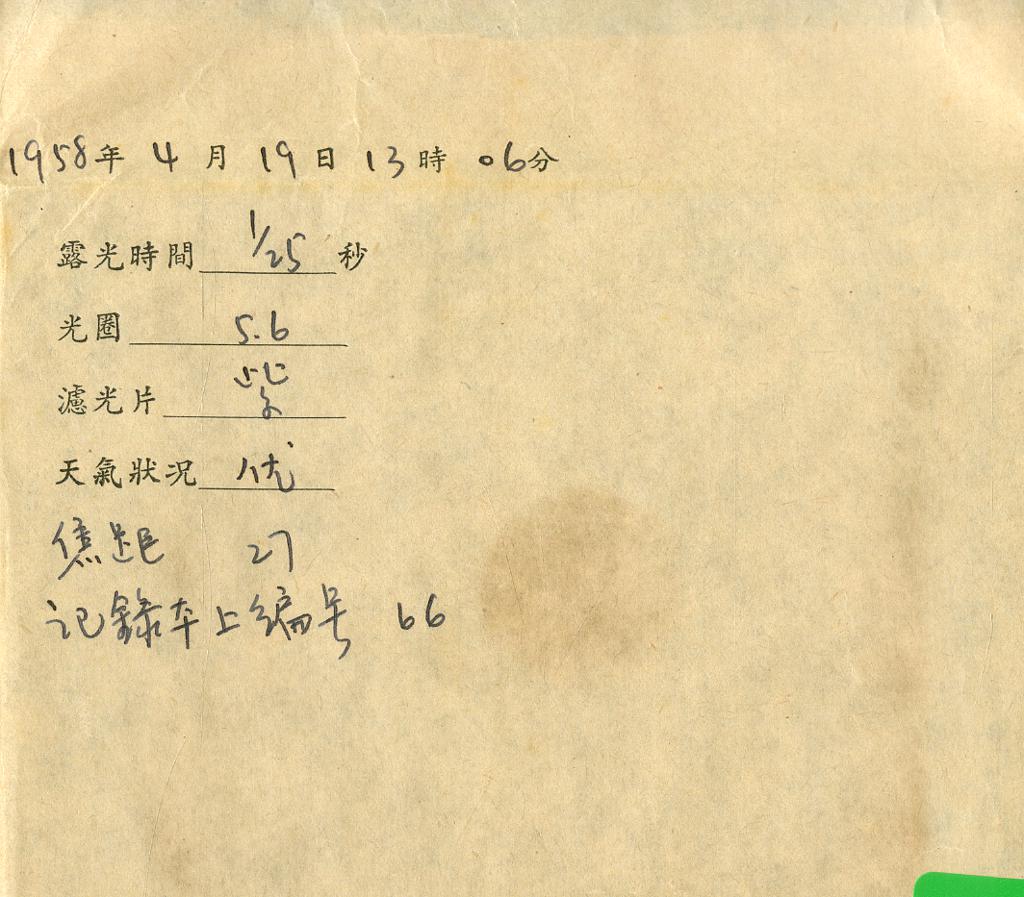 1958年 4 月 19 日 13 時 06分
露光時間 1/25 秒
光圈 5.6
濾光片 紫
天氣狀况 优
焦距 27
记録本上编号 66